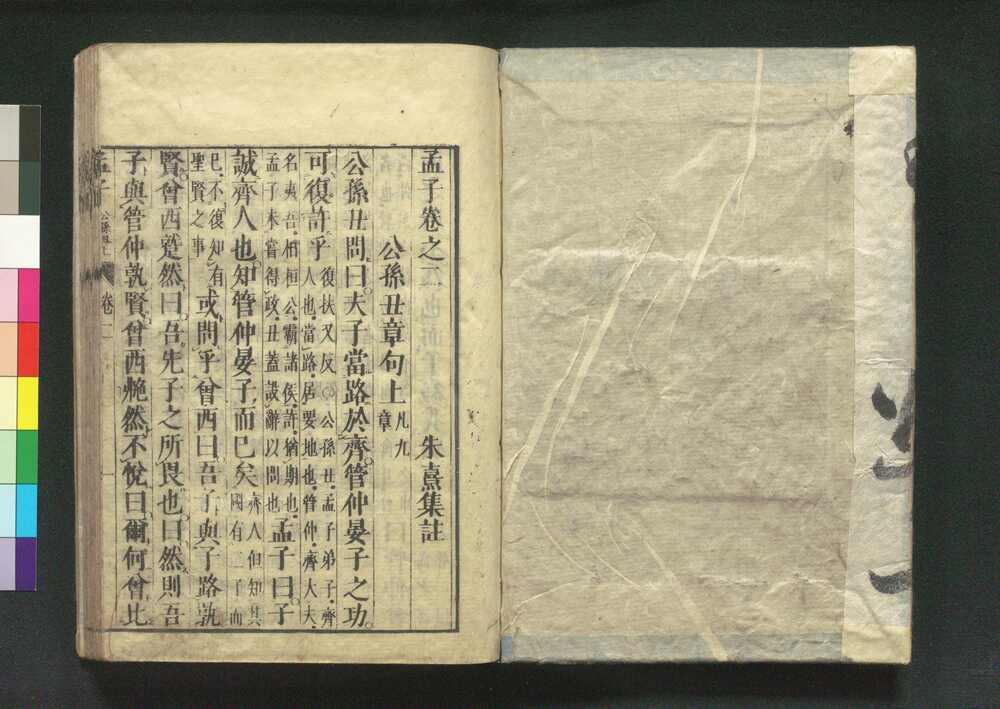 孟子卷之二 朱熹集註
公孫丑章句上 凡九章
公孫丑問曰夫子當路於齊管仲晏子之功
可復許乎 復扶又反○公孫丑孟子弟子齊人也當路居要地也管仲齊大夫
名夷吾相桓公霸諸侯許猶期也孟子未嘗得政丑蓋設辭以問也 孟子曰子
誠齊人也知管仲晏子而已矣 齊人但知其國有二子而
已不復知有聖賢之事 或問乎曾西曰吾子與子路孰
賢曾西蹵然曰吾先子之所畏也曰然則吾
子與管仲孰賢曾西艴然不悅曰爾何曾比
孟子 公孫丑上 卷二